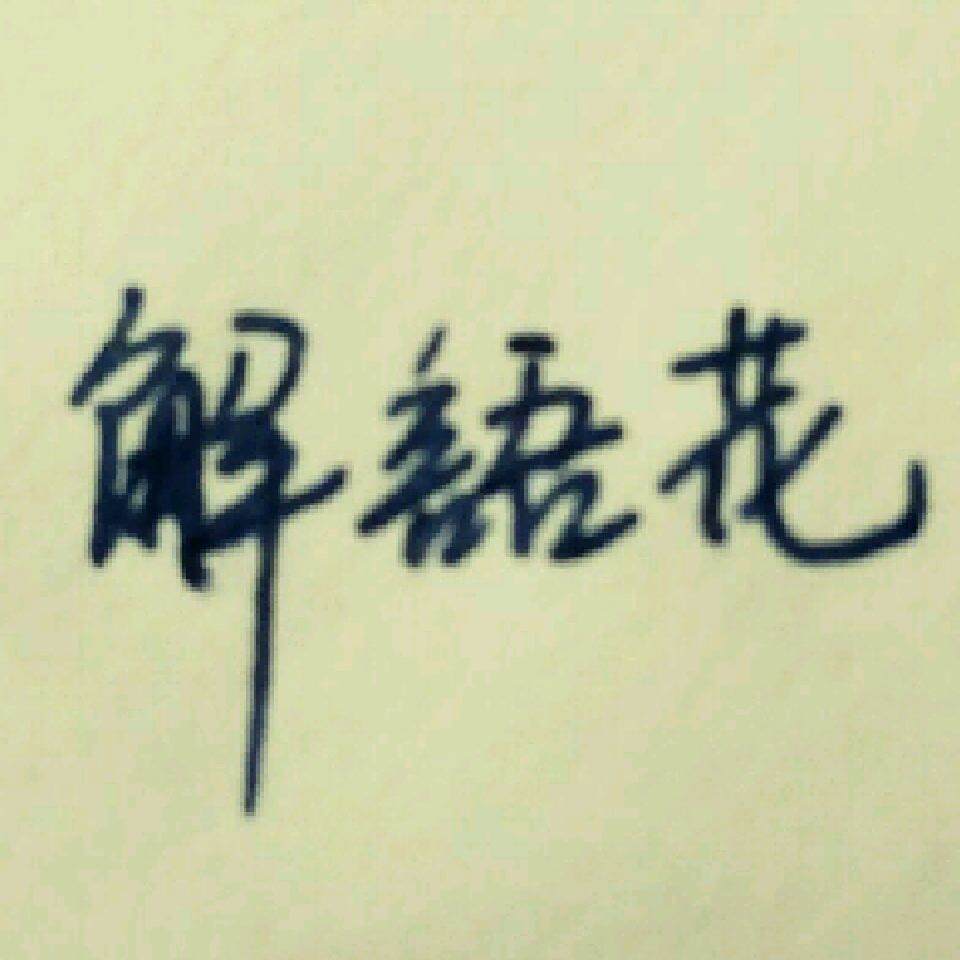 解語花